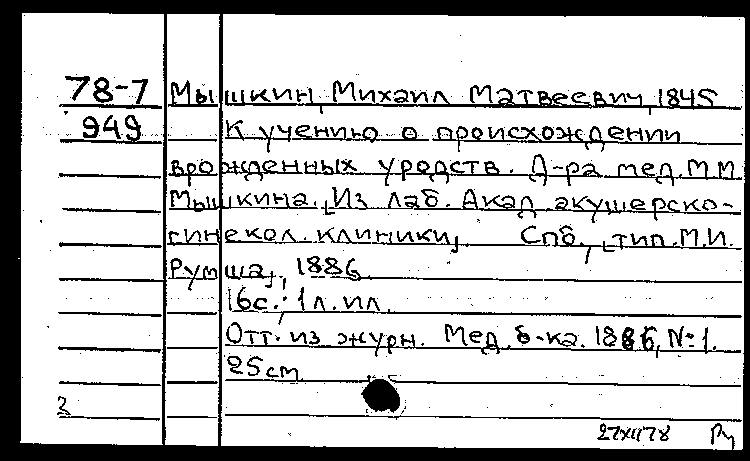 78-7 Мышкин, Михаил Матвеевич, 1845
949 К учению о происхождении
врожденных уродств. Д-ра мед. М.М.
Мышкина. [Из лаб. Акад. акушерско-
гинекол. клиники]. Спб., [тип. М.И.
Румша], 1886.
16с.; 1 л. ил.
Отт. из журн. Мед. б-ка. 1886, №1.
25 см.
2
27XII78 Ру